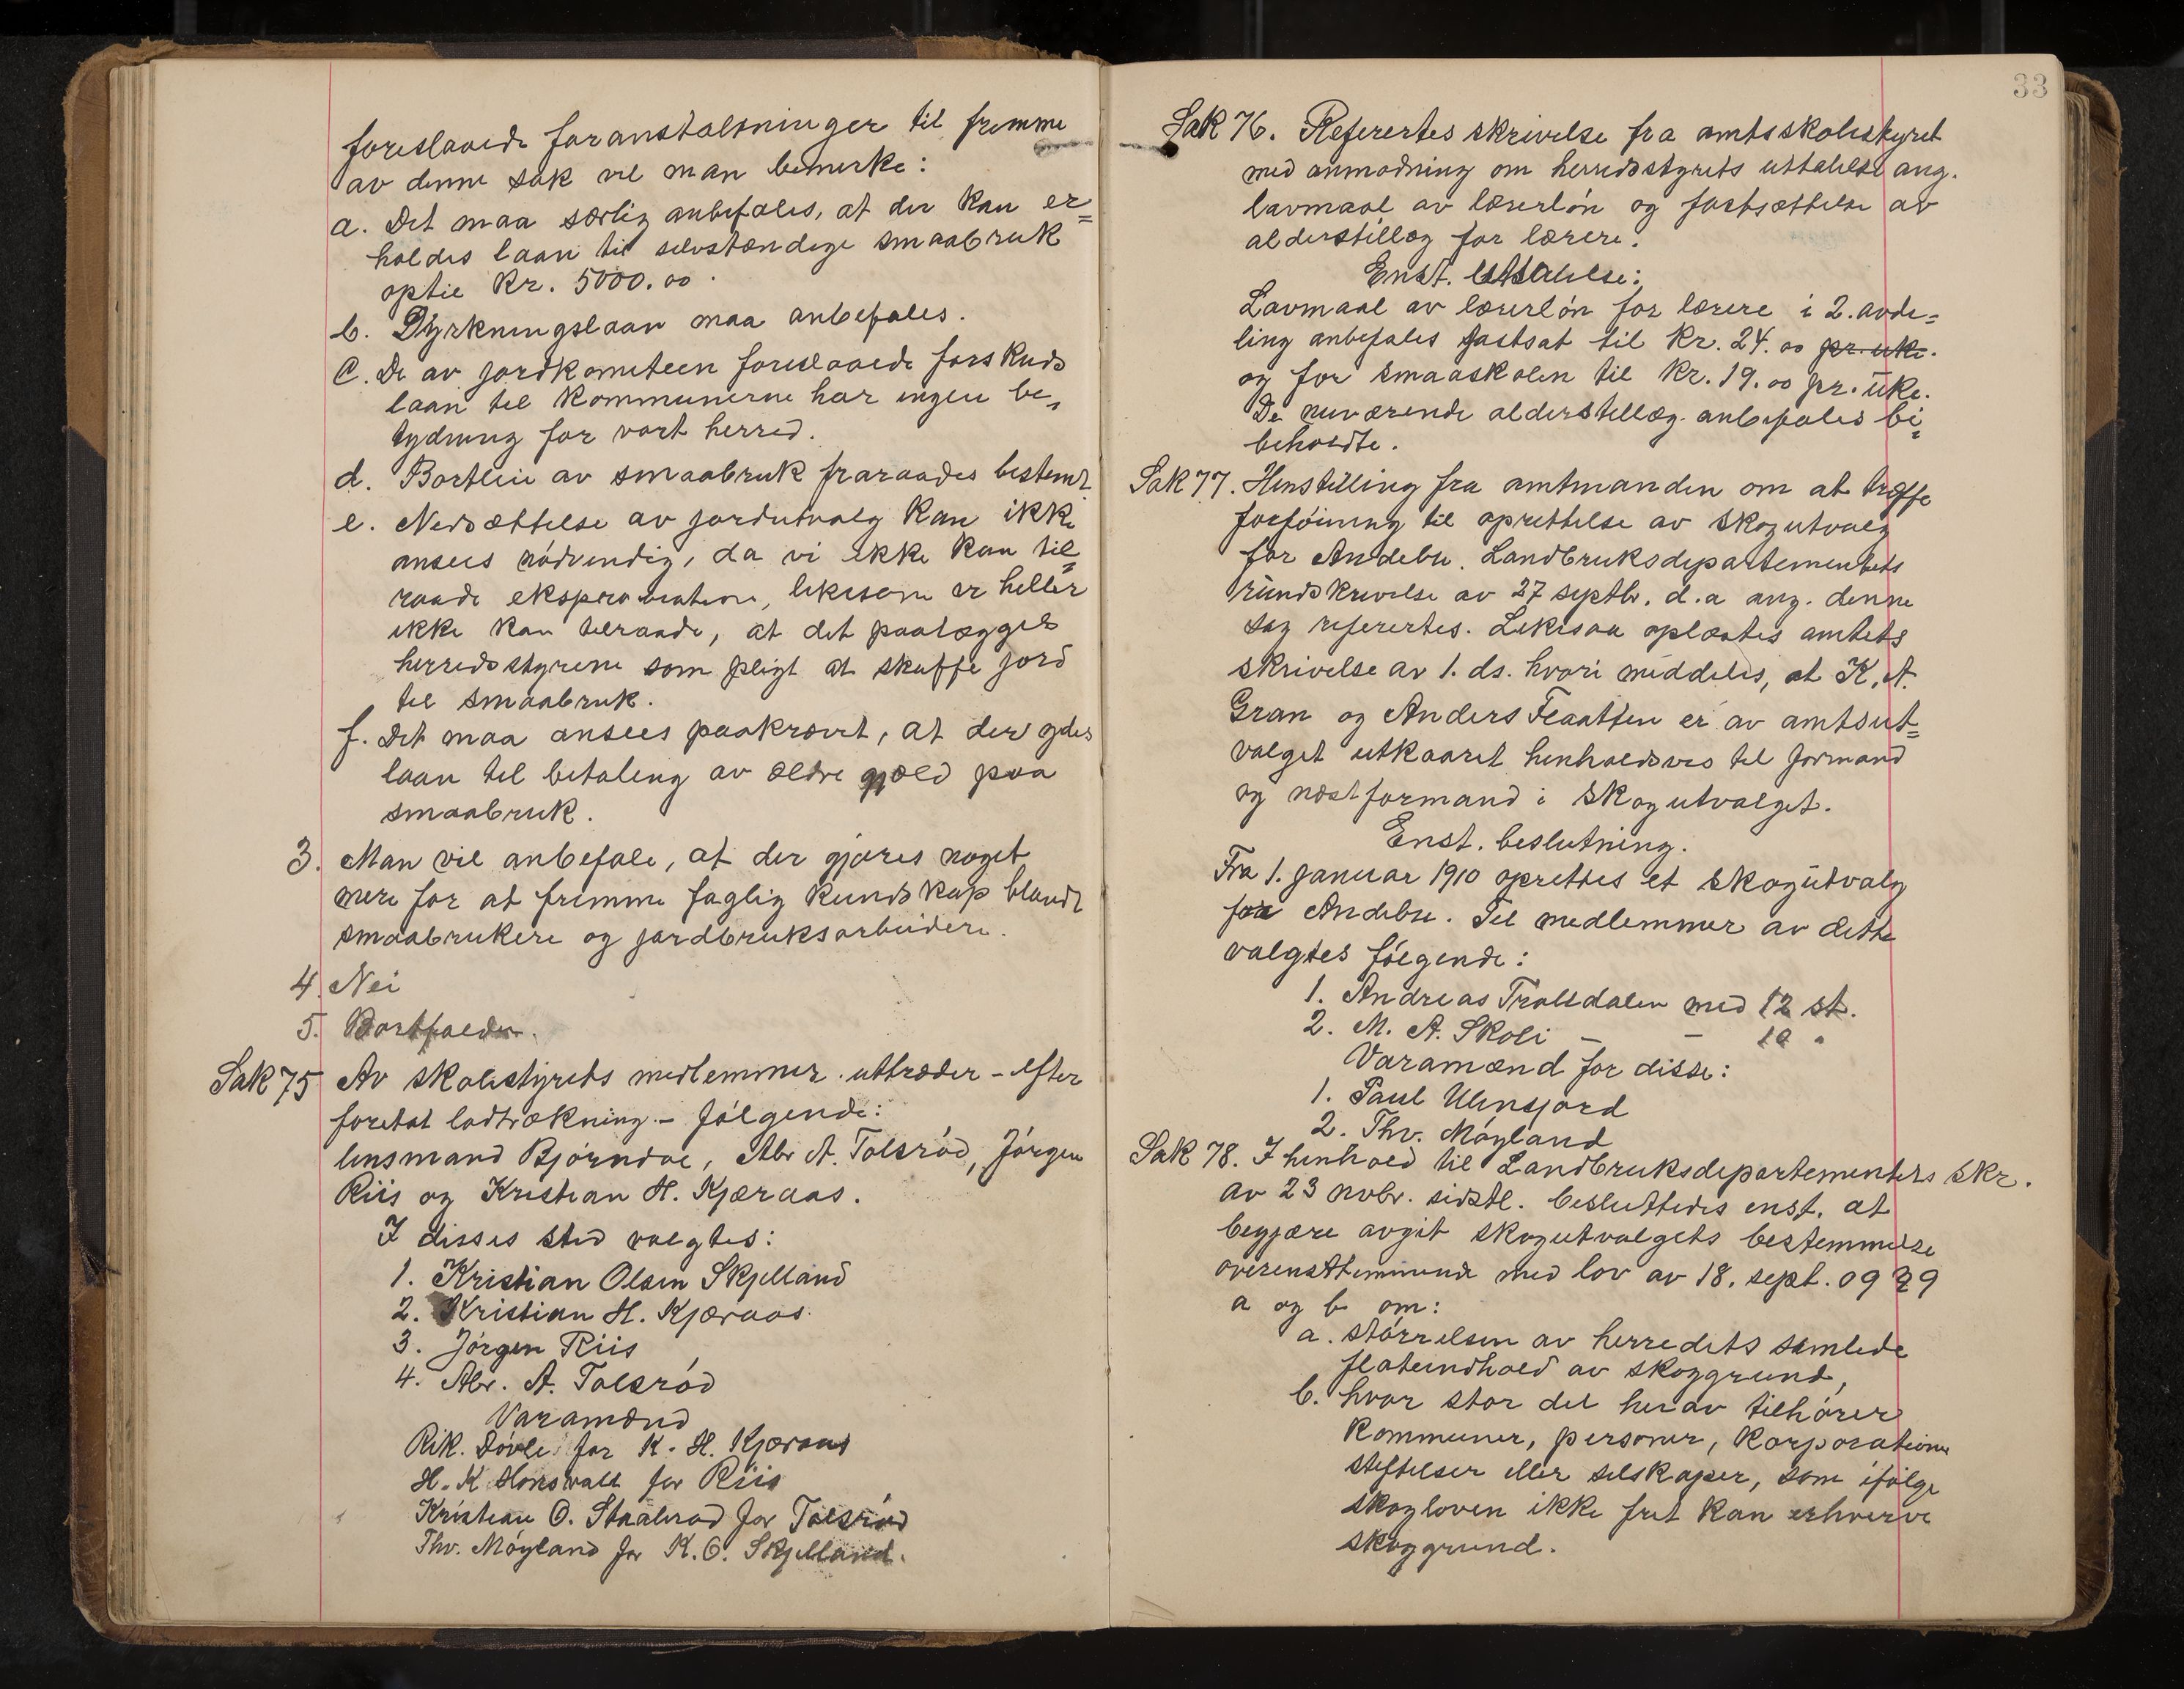 foreslaaede foranstaltninger til fremme
av denne sak vil man bemerke:
a. Det maa særlig anbefales, at der kan er=
holdes laan til selvstændige smaabruk
optil kr. 5000.00.
b. Dyrkningslaan maa anbefales.
c. De av jordkomiteen foreslaaede forskuds
laan til kommunerne har ingen be=
tydning for vort herred.
d. Bortleie av smaabruk fraraades bestemt
e. Nedsættelse av jordutvalg kan ikke
ansees nødvendig, da vi ikke kan til=
raade ekspropriation, likesom vi heller
ikke kan tilraade, at det paalægges
herredsstyrene som pligt at skaffe jord
til smaabruk.
f. Det maa ansees paakrævet, at der ydes
laan til betaling av ældre gjæld paa
smaabruk.
3. Man vil anbefale, at der gjøres noget
mere for at fremme faglig kundskap blandt
smaabrukere og jordbruksarbeidere.
4. Nei
5. Bortfalder.
Sak 75 Av skolestyrets medlemmer uttræder - efter
foretat lodtrækning - følgende:
lensmand Bjørndal, Abr A. Tolsrød, Jørgen
Riis og Kristian H. Kjæraas.
I disses sted valgtes:
1. Kristian Olsen Skjelland
2. Kristian H. Kjæraas.
3. Jørgen Riis
4. Abr. A. Tolsrød
Varamænd
Rik. Døvle for K. H. Kjæraas
H. K. Honsvall for Riis
Kristian O. Staalerød for Tolsrød
Thv. Møyland for K. O. Skjelland.
33
Sak 76. Refertes skrivelse fra amtsskolestyret
med anmodning om herredsstyrets uttalelse ang.
lavmaal av lærerløn og fastsættelse av
alderstillæg for lærere.
Enst. uttalelse:
Lavmaal av lærerløn for lærere i 2. avde=
ling anbefales fastsat til kr. 24.00 pr. uke.
og for smaaskolen til kr. 19.00 pr. uke.
De nuværende alderstillæg anbefales bi=
beholdte.
Sak 77. Henstilling fra amtmanden om at træffe
forføining til oprettelse av skogutvalg
for Andebu. Landbruksdepartementets
rundskrivelse av 27 septbr. d.a ang. denne
sag refertes. Likesaa oplæstes amtets
skrivelse av 1. ds. hvori meddeles, at K. A.
Gran og Anders Flaatten er av amtsut=
valget utkaaret henholdsvis til formand
og næstformand i skogutvalget.
Enst. beslutning.
Fra 1. januar 1910 oprettes et skogutvalg
for Andebu. Til medlemmer av dette
valgtes følgende:
1. Andreas Trolsdalen med 12 st.
2. M. A. Skoli - - 10 "
Varamænd for disse:
1. Paul Ulensjord
2. Thv. Møyland
Sak 78. I henhold til Landbruksdepartementets skr.
av 23 novbr. sidstl. besluttedes enst. at
begjære avgit skogutvalgets bestemmelse
overensstemmende med lov av 18. sept. 09 § 29
a og b om:
a. størrelsen av herredets samlede
flateindhold av skoggrund,
b. hvor stor del herav tilhører
kommuner, personer, korporationer
stiftelser eller selskaper, som ifølge
skogloven ikke frit kan erhverve
skoggrund.